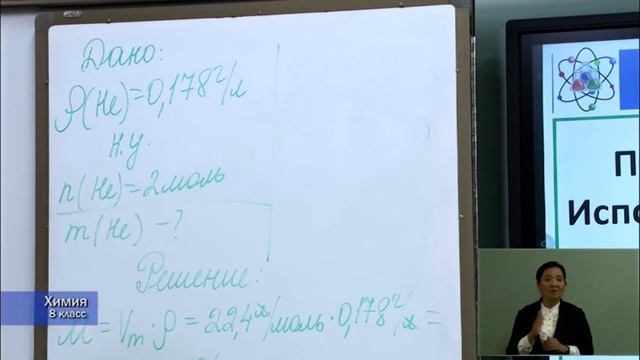 Дано:
ρ(He)=0,178 г/л
н.у.
n(He)=2 моль
m(He) – ?
Решение:
M = Vm · ρ = 22,4 л/моль · 0,178 г/л =
Химия
8 класс
П
Испо